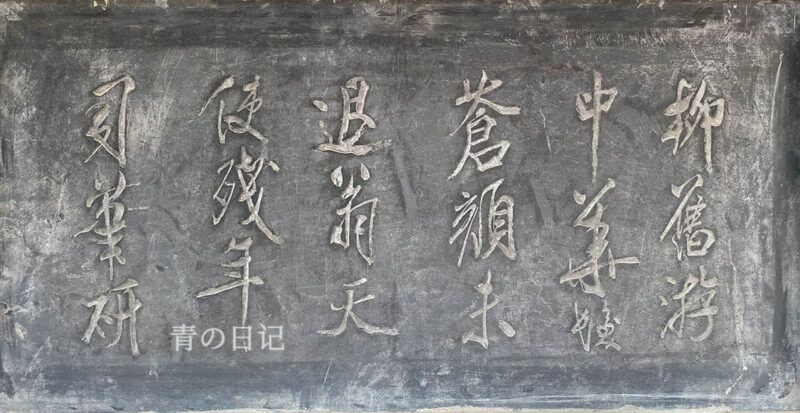 柳舊游
中華髮
蒼顏未
退翁天
使殘年
司筆研
青の日记